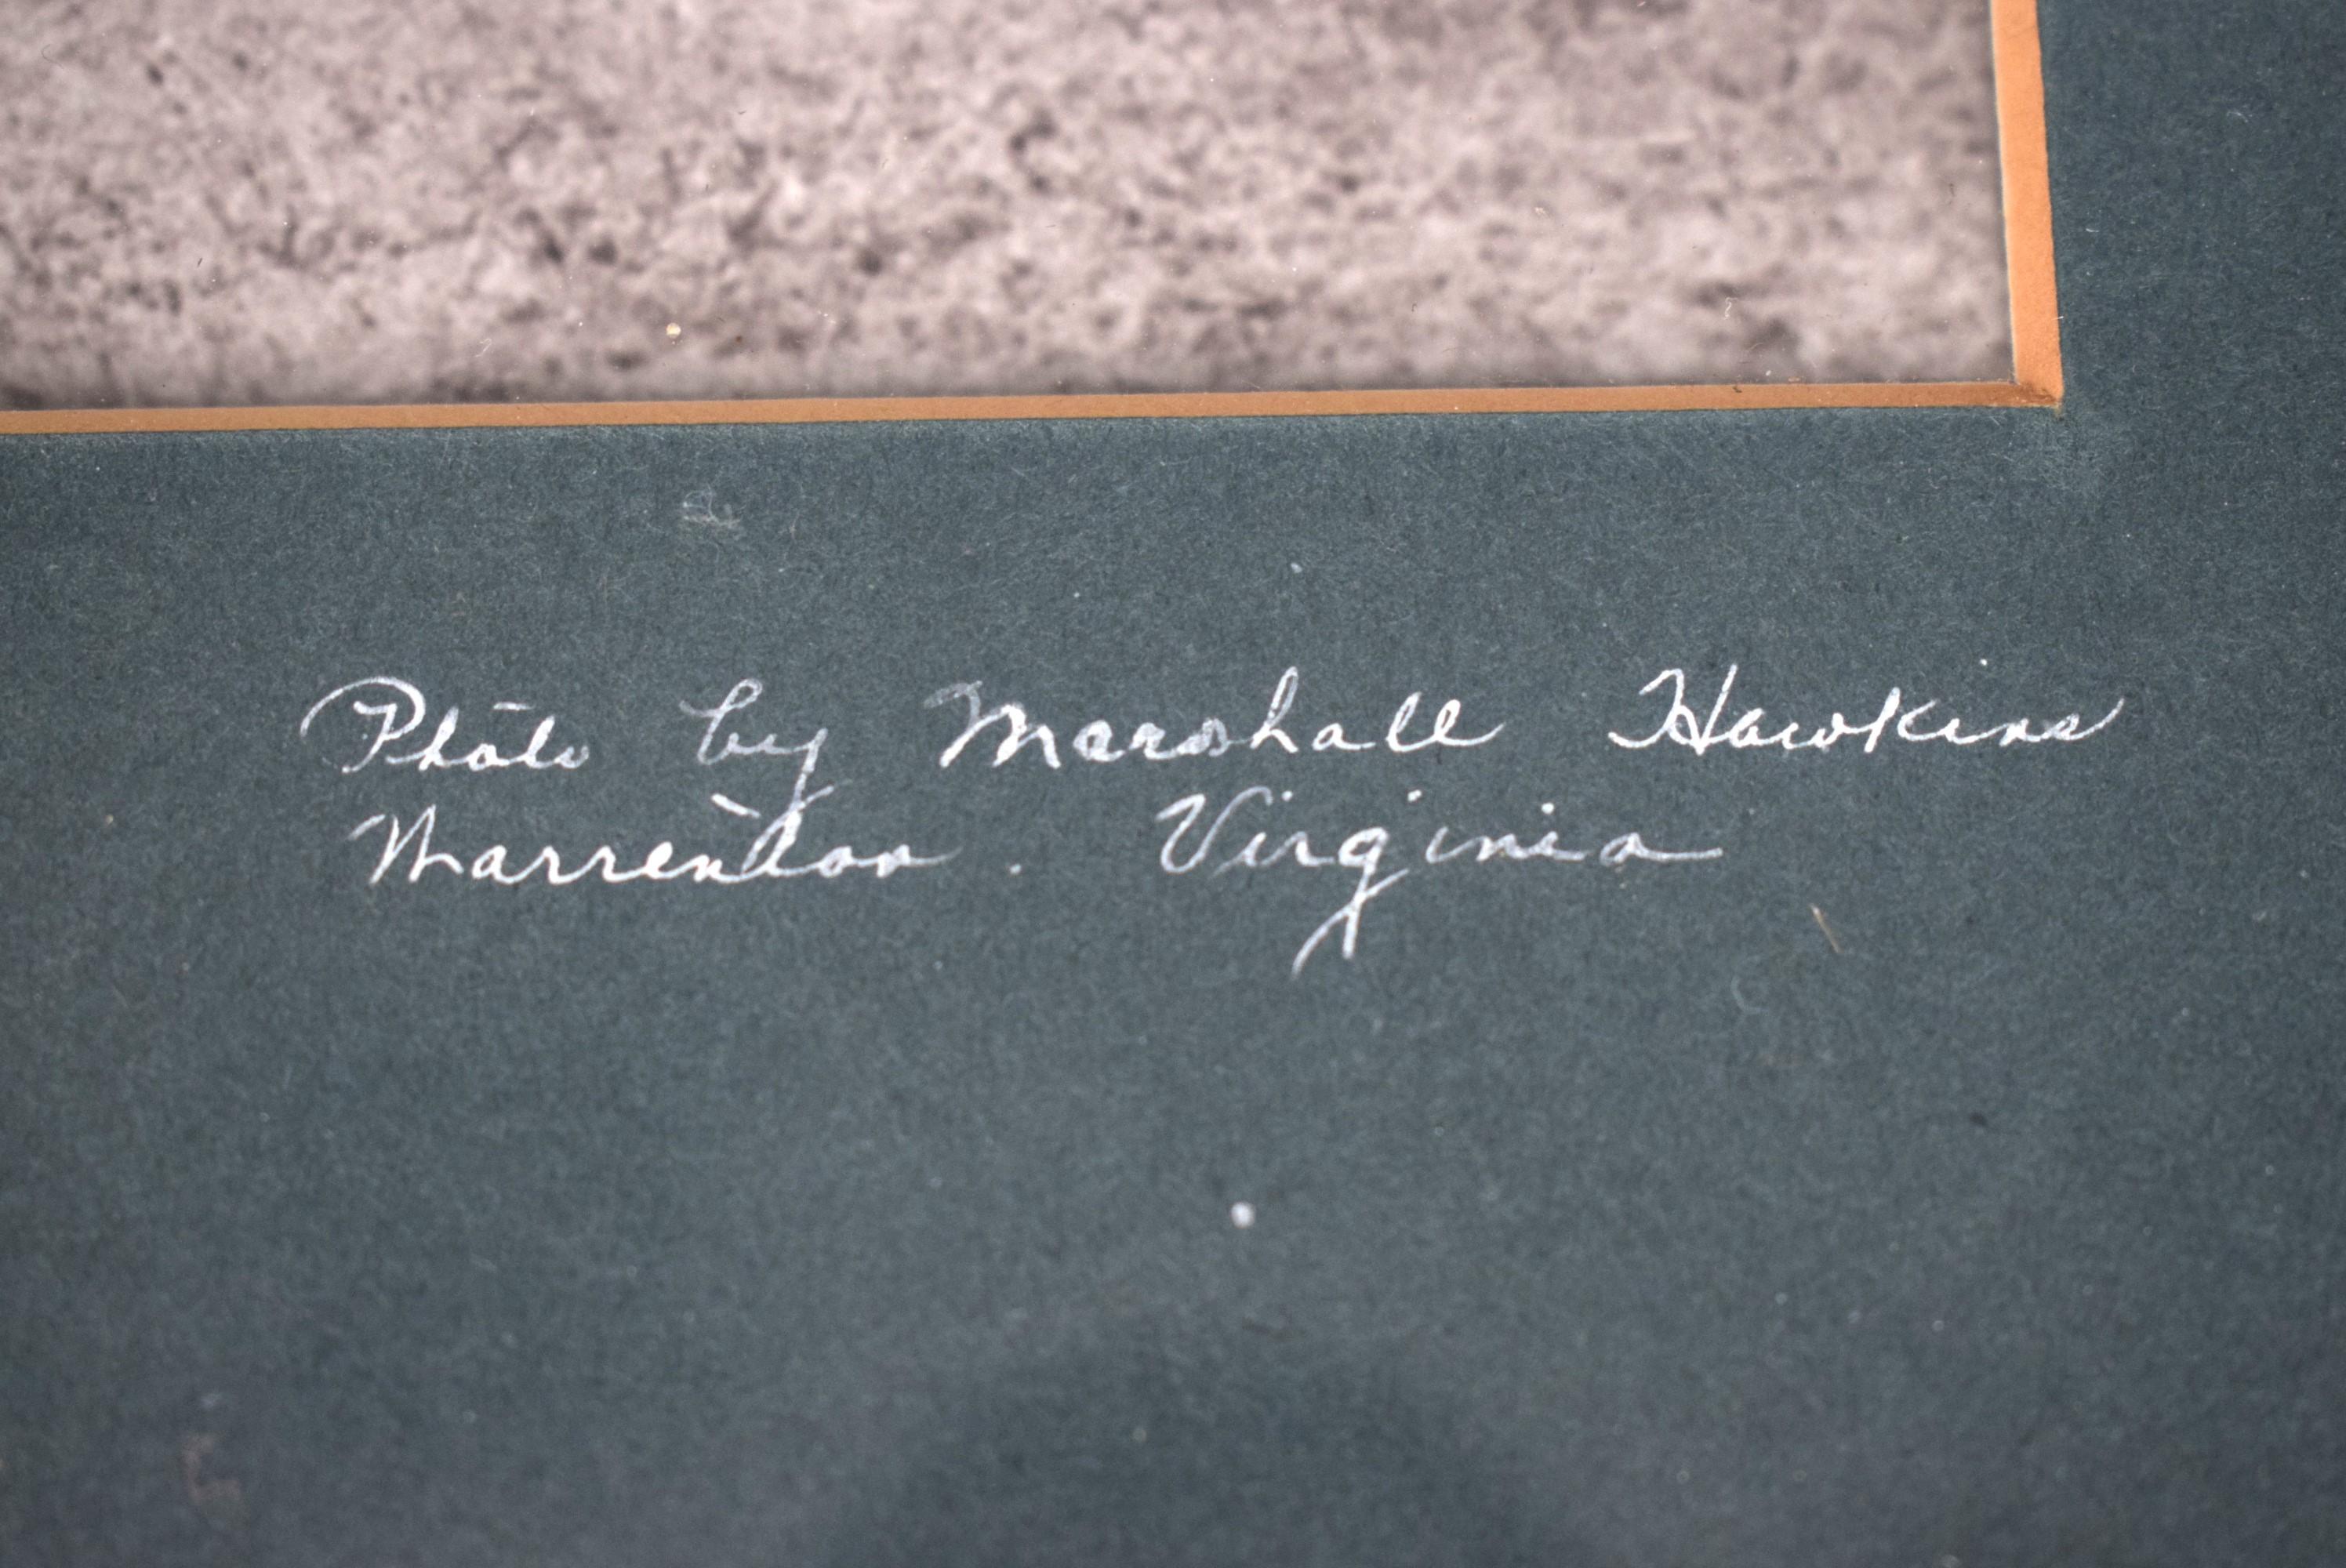 Photo by Marshall Hawkins
Warrenton. Virginia